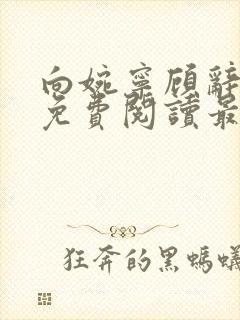 向婉寧顾辭
免費閱讀最
狂奔的黑螞蟻